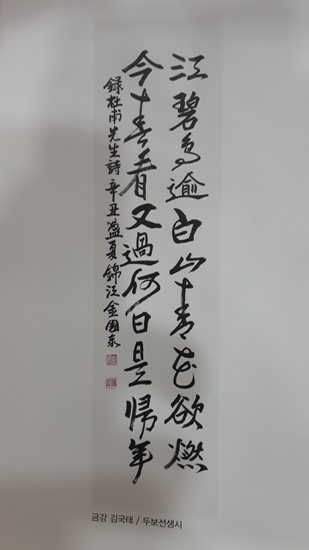 江碧鳥逾白山青花欲燃
今春看又過何日是歸年
錄杜甫先生詩辛丑盛夏錦江金國泰
금강 김국태 / 두보선생시